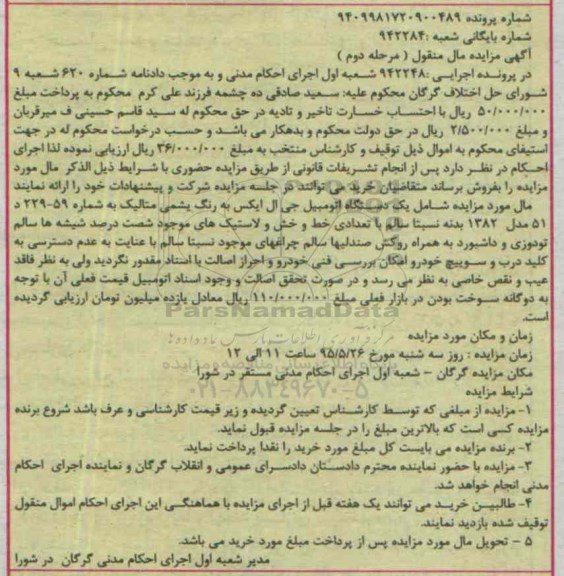 شماره پرونده ۹۴۰۹۹۸۱۷۲۰۹۰۰۴۸۹
شماره بایگانی شعبه :۹۴۲۲۸۴
آگهی مزایده مال منقول ( مرحله دوم )
در پرونده اجرایی :۹۴۲۲۴۸ شعبه اول اجرای احکام مدنی و به موجب دادنامه شماره ۶۲۰ شعبه ۹
شورای حل اختلاف گرگان محکوم علیه: سعید صادقی ده چشمه فرزند علی کرم محکوم به پرداخت مبلغ
۵۰/۰۰۰/۰۰۰ ریال با احتساب خسارت تاخیر و تادیه در حق محکوم له سید قاسم حسینی ف میرقربان
و مبلغ ۲/۵۰۰/۰۰۰ ریال در حق دولت محکوم و بدهکار می باشد و حسب درخواست محکوم له در جهت
استیفای محکوم به اموال ذیل توقیف و کارشناس منتخب به مبلغ ۳۶/۰۰۰/۰۰۰ ریال ارزیابی نموده لذا اجرای
احکام در نظر دارد پس از انجام تشریفات قانونی از طریق مزایده حضوری با شرایط ذیل الذکر مال مورد
مزایده را بفروش برساند متقاضیان خرید می توانند در جلسه مزایده شرکت و پیشنهادات خود را ارائه نمایند
مال مورد مزایده شامل یک دستگاه اتومبیل جی ال ایکس به رنگ یشمی متالیک به شماره ۵۹-۲۲۹ د
۵۱ مدل ۱۳۸۲ بدنه نسبتا سالم با تعدادی خط و خش و لاستیک های موجود شصت درصد شیشه ها سالم
تودوزی و داشبورد به همراه روکش صندلیها سالم چراغهای موجود نسبتا سالم با عنایت به عدم دسترسی به
کلید درب و سوییچ خودرو امکان بررسی فنی خودرو و احراز اصالت یا اسناد مقدور نگردید ولی به نظر فاقد
عیب و نقص خاصی به نظر می رسد و در صورت تحقق اصالت و وجود اسناد اتومبیل قیمت فعلی آن با توجه
به دوگانه سوخت بودن در بازار فعلی مبلغ ۱۱۰/۰۰۰/۰۰۰ ریال معادل یازده میلیون تومان ارزیابی گردیده
است.
ParsNamadData
زمان و مکان مورد مزایده
زمان مزایده : روز سه شنبه مورخ ۹۵/۵/۲۶ ساعت ۱۱ الی ۱۲
مکان مزایده گرگان – شعبه اول اجرای احکام مدنی مستقر در شورا
۰۲۱-۸۸۳۴۹۶۷۰-۵
شرایط مزایده
۱- مزایده از مبلغی که توسط کارشناس تعیین گردیده و زیر قیمت کارشناسی و عرف باشد شروع برنده
مزایده کسی است که بالاترین مبلغ را در جلسه مزایده قبول نماید.
۲- برنده مزایده می بایست کل مبلغ مورد خرید را نقدا پرداخت نماید.
۳- مزایده با حضور نماینده محترم دادستان دادسرای عمومی و انقلاب گرگان و نماینده اجرای احکام
مدنی انجام خواهد شد.
۴- طالبین خرید می توانند یک هفته قبل از اجرای مزایده با هماهنگی این اجرای احکام اموال منقول
توقیف شده بازدید نمایند.
۵ – تحویل مال مورد مزایده پس از پرداخت مبلغ مورد خرید می باشد.
مدیر شعبه اول اجرای احکام مدنی گرگان در شورا